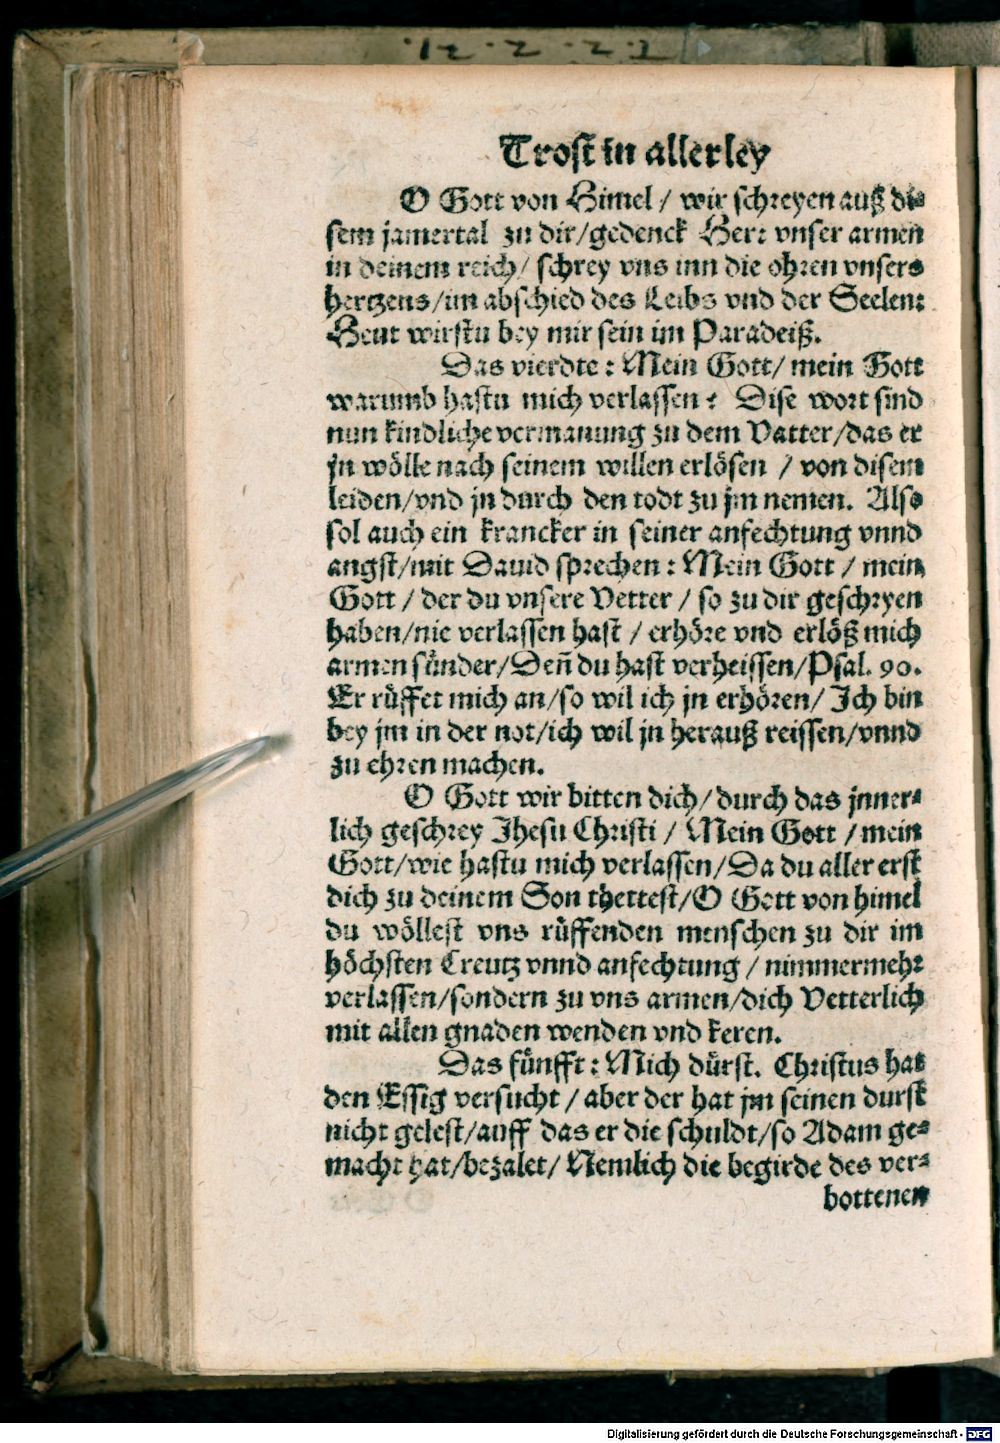 Trost in allerley
O Gott von Himel / wir schreyen auß di-
sem jamertal zu dir/gedenck Herr vnser armen
in deinem reich/ schrey vns inn die ohren vnsers
hertzens/im abschied des Leibs vnd der Seelen:
Heut wirstu bey mir sein im Paradeiß.
Das vierdte : Mein Gott/ mein Gott
warumb hastu mich verlassen? Dise wort sind
nun kindliche vermanung zu dem Vatter/das er
jn wölle nach seinem willen erlösen / von disem
leiden/vnd jn durch den todt zu jm nemen. Also
sol auch ein krancker in seiner anfechtung vnnd
angst/mit Dauid sprechen : Mein Gott / mein
Gott / der du vnsere Vetter / so zu dir geschryen
haben/nie verlassen hast / erhöre vnd erlöß mich
armen sünder/Deñ du hast verheissen/Psal. 90.
Er rüffet mich an/so wil ich jn erhören/ Ich bin
bey jm in der not/ich wil jn herauß reissen/vnnd
zu ehren machen.
O Gott wir bitten dich/durch das jnner-
lich geschrey Jhesu Christi / Mein Gott / mein
Gott/wie hastu mich verlassen/Da du aller erst
dich zu deinem Son thettest/O Gott von himel
du wöllest vns rüffenden menschen zu dir im
höchsten Creutz vnnd anfechtung / nimmermehr
verlassen/sondern zu vns armen/dich Vetterlich
mit allen gnaden wenden vnd keren.
Das fünfft : Mich dürst. Christus hat
den Essig versucht / aber der hat jm seinen durst
nicht gelest/auff das er die schuldt/so Adam ge-
macht hat/bezalet/ Nemlich die begirde des ver-
bottenen
Digitalisierung gefördert durch die Deutsche Forschungsgemeinschaft - DFG